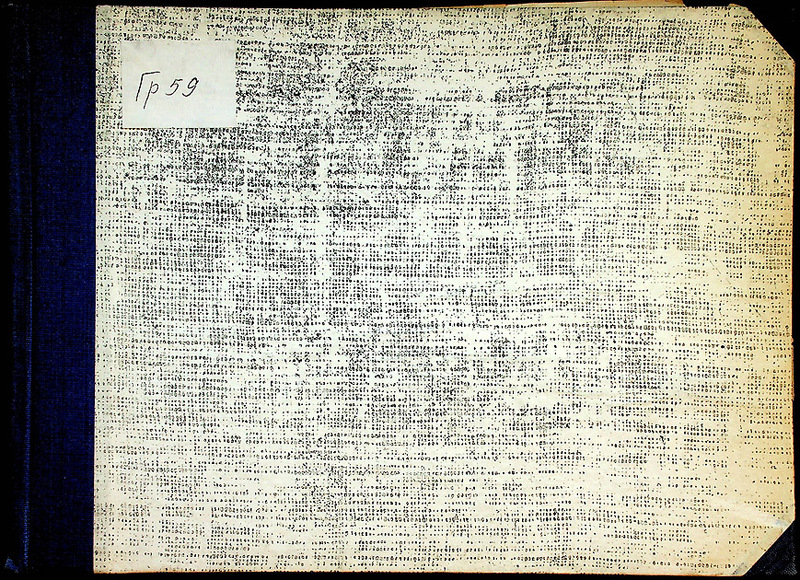 Гр 59